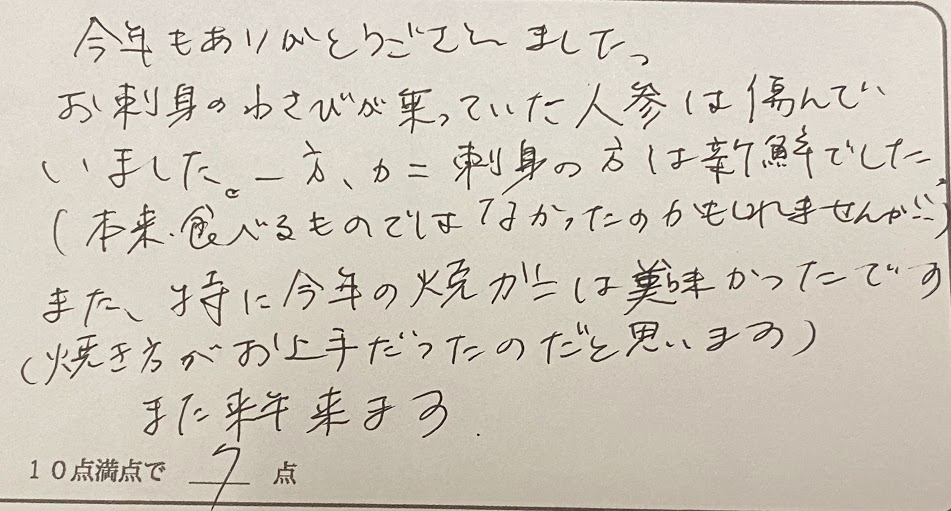 今年もありがとうございました。
お刺身のわさびが乗っていた人参は傷んでい
いました。一方、カニ刺身の方は新鮮でした。
(本来、食べるものではなかったのかもしれませんが…)
また、特に今年の焼ガニは美味かったです
(焼き方がお上手だったのだと思います)
また来年来ます.
10点満点で 7 点